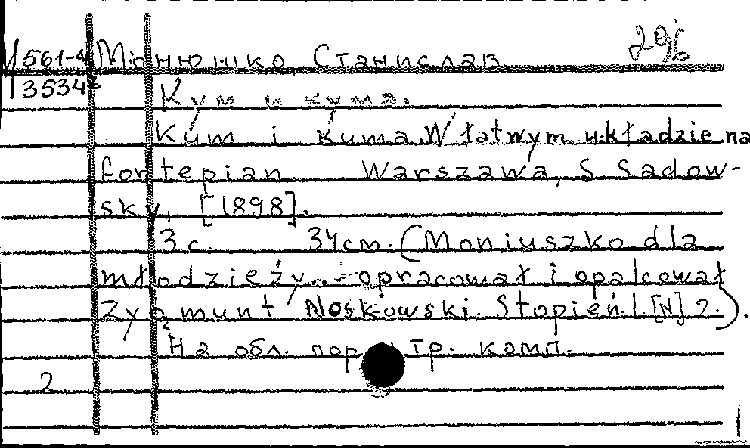 561-4 Монюшко, Станислав 296
35342 Кум и кума.
Kum i kuma. W łatwym układzie na
fortepian Warszawa, S. Sadow-
sky, [1898].
3 с. 34 см. (Moniuszko dla
młodzieży... opracował i opalcował
Zygmunt Noskowski. Stopień I [N] 2.).
На обл. портр. комп.
2